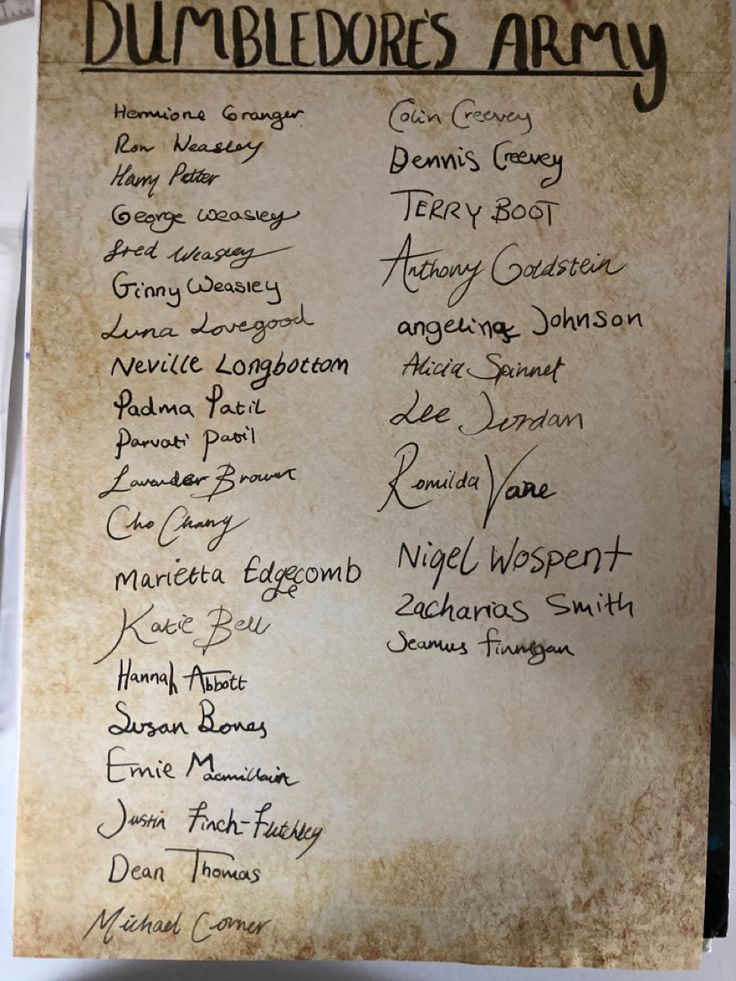 DUMBLEDORE'S ARMY
Hermione Granger
Ron Weasley
Harry Potter
George Weasley
Fred Weasley
Ginny Weasley
Luna Lovegood
Neville Longbottom
Padma Patil
Parvati Patil
Lavander Brown
Cho Chang
Marietta Edgecomb
Katie Bell
Hannah Abbott
Susan Bones
Ernie Macmillain
Justin Finch-Flitchley
Dean Thomas
Michael Corner
Colin Creevey
Dennis Creevey
TERRY BOOT
Anthony Goldstein
angelina Johnson
Alicia Spinnet
Lee Jordan
Romilda Vane
Nigel Wospent
Zacharias Smith
Seamus Finnigan